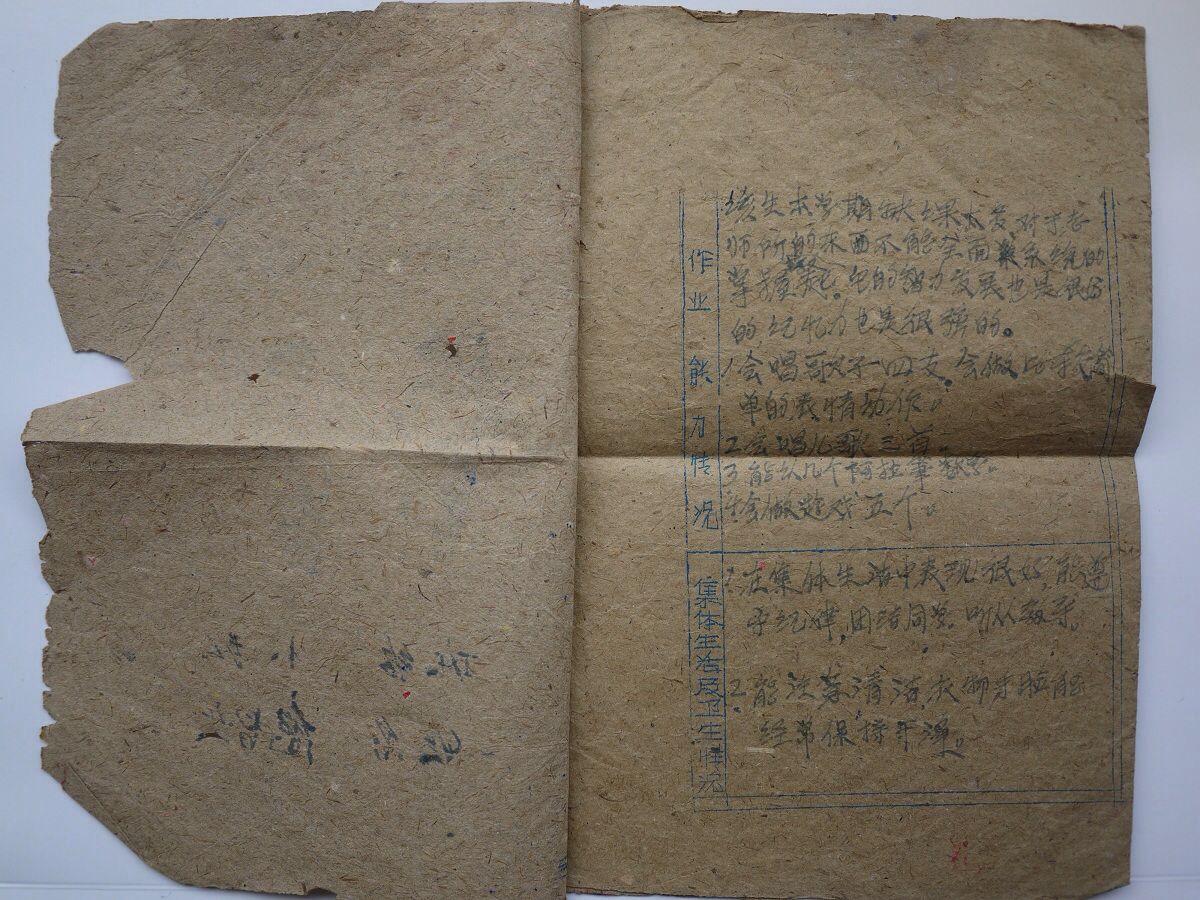 作业能力情况
该生本学期缺课太多,对于老
师所的东西不能全面系统的
掌握起。它的智力发展也是很好
的记忆力也是很强的。
1会唱歌子四支,会做比较简
单的表情动作。
2.会唱儿歌三首。
3能认几个阿拉
4会做遊戏五个。
集体生活及卫生情况
1.在集体生活中表现很好能遵
守纪律,团结同学,听从教导。
2.能注意清洁衣脚手脸能
经常保持干净。